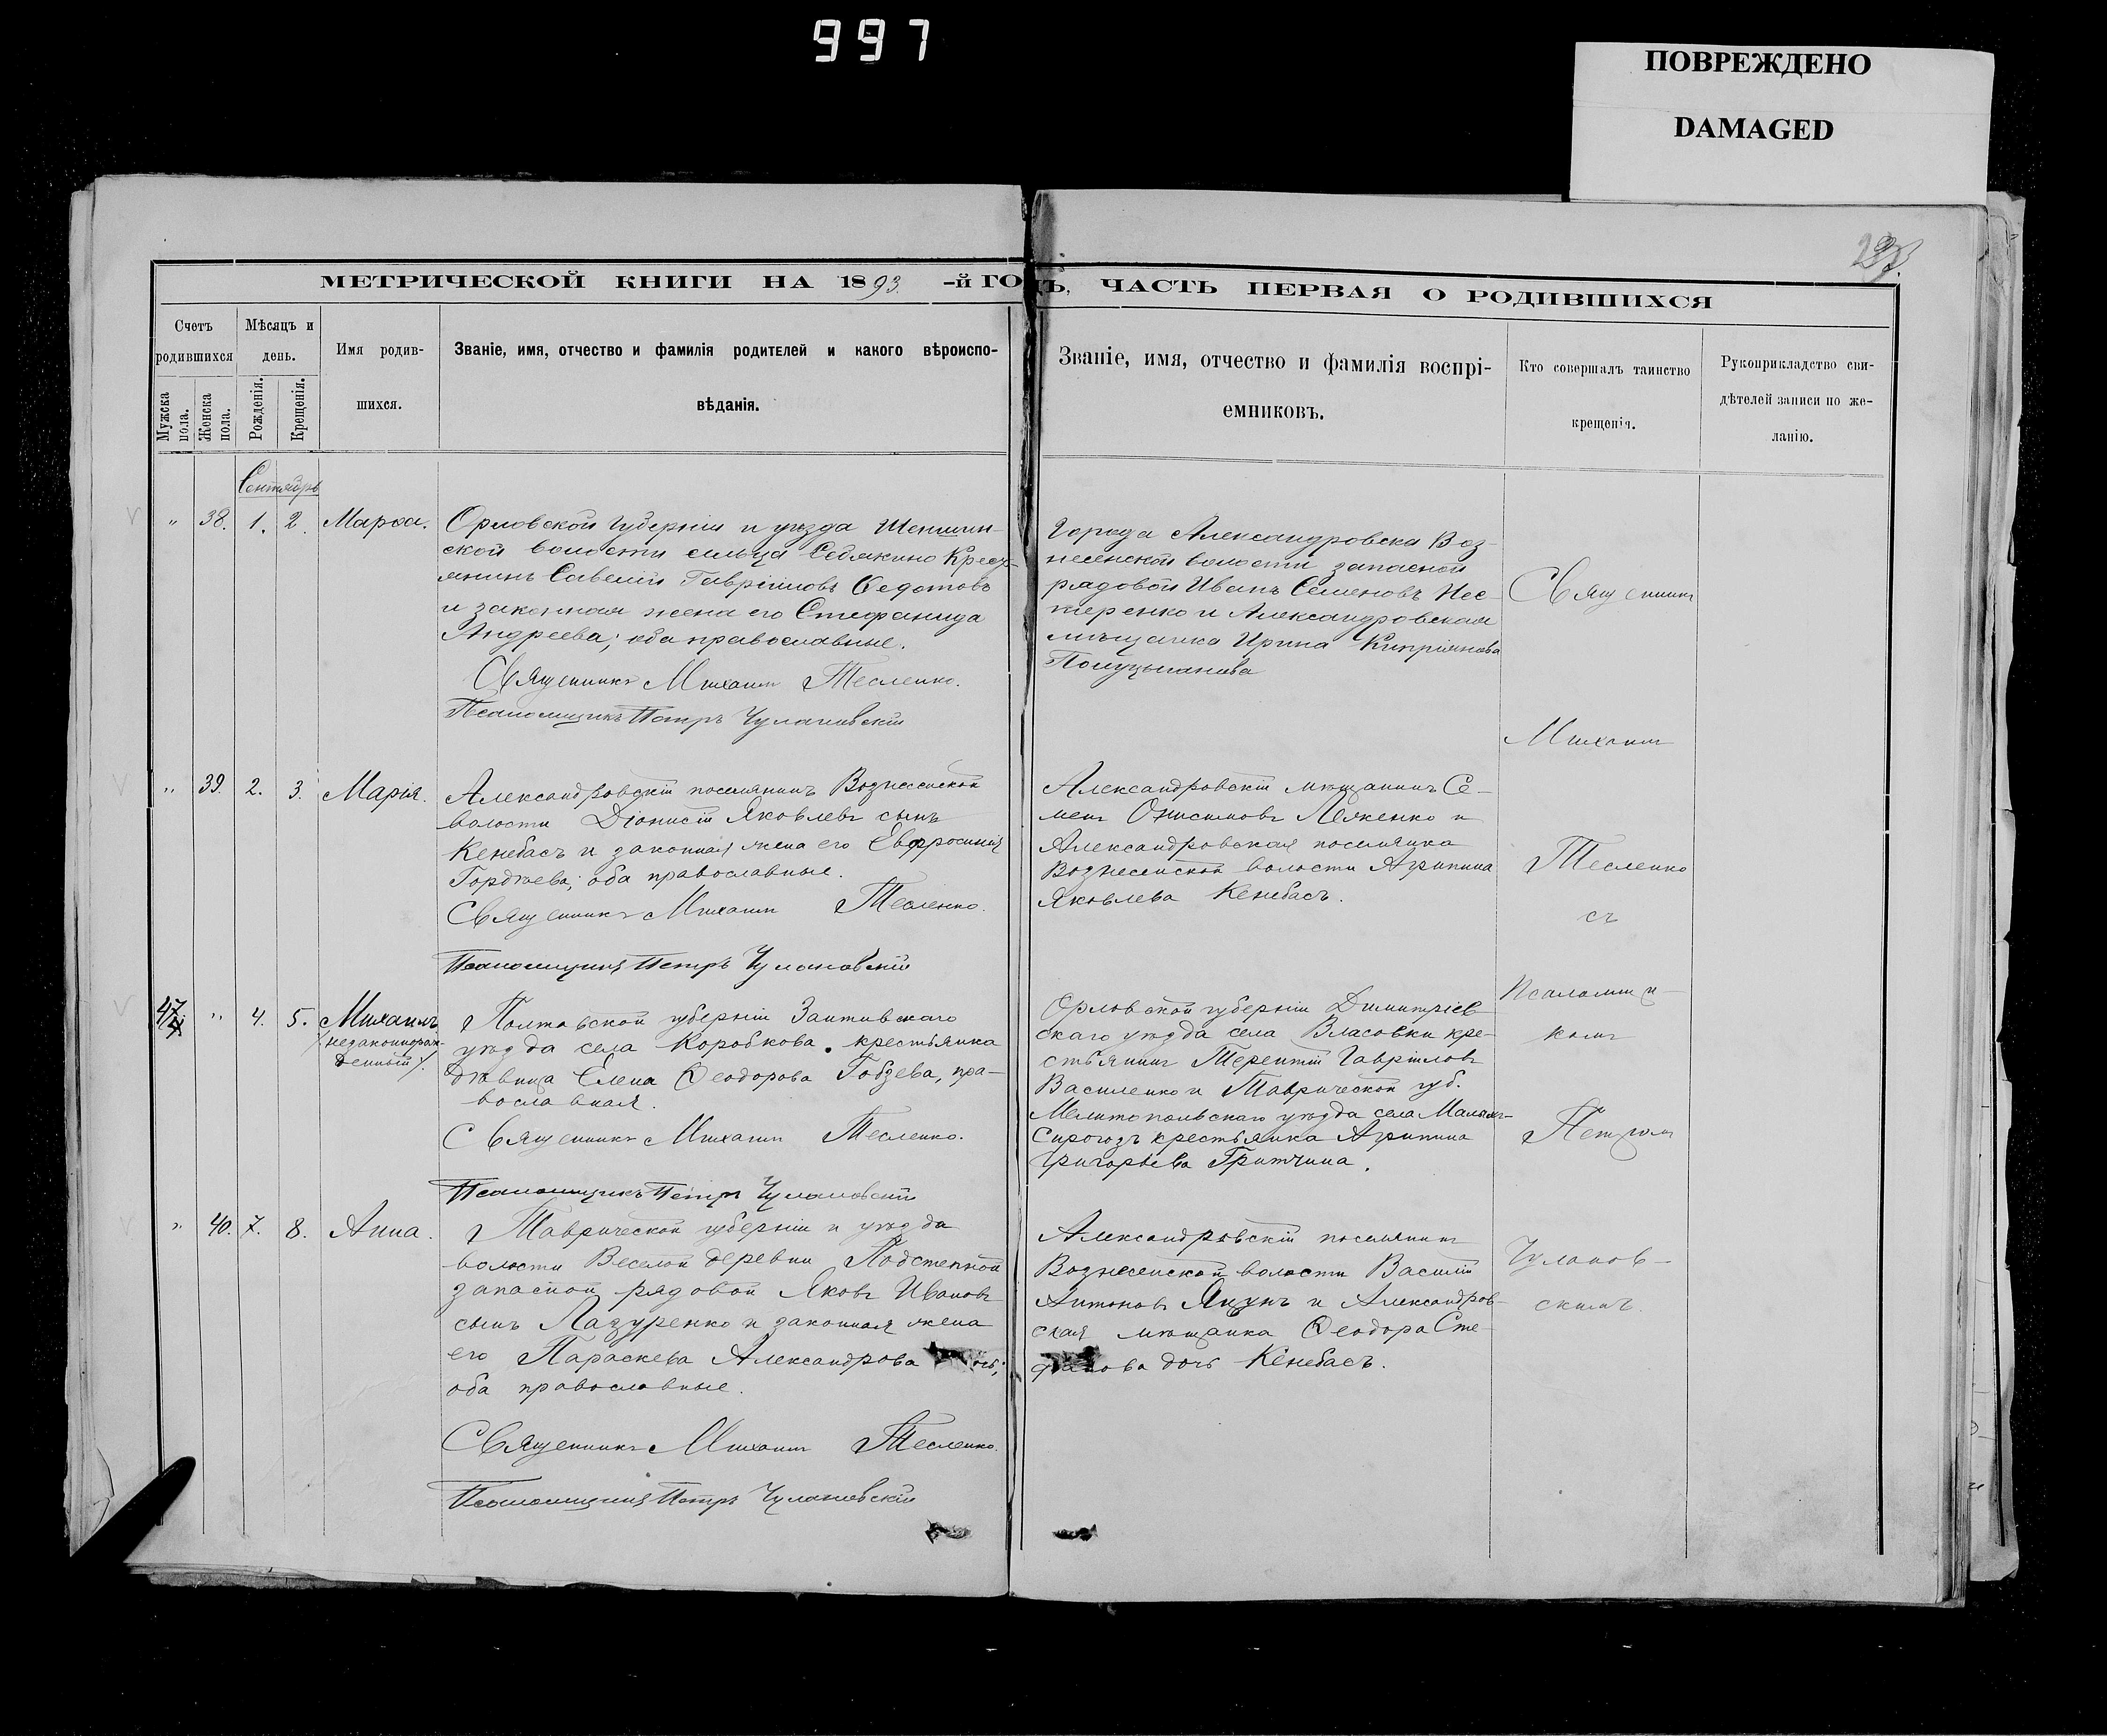 997
ПОВРЕЖДЕНО
DAMAGED
МЕТРИЧЕСКОЙ КНИГИ НА 1893.-й ГОДЪ, ЧАСТЬ ПЕРВАЯ О РОДИВШИХСЯ
Счетъ родившихся
Мужска пола.
Женска пола.
Мѣсяцъ и день.
Рожденія.
Крещенія.
Имя родив-
шихся.
Званіе, имя, отчество и фамилія родителей и какого вѣроиспо-
вѣданія.
Званіе, имя, отчество и фамилія воспрі-
емниковъ.
Кто совершалъ таинство
крещенія.
Рукоприкладство сви-
дѣтелей записи по же-
ланію.
Сентябрь
" 38. 1. 2. Марѳа.
Орловской губерніи и уезда Шеншин-
ской волости сельца Себякино Крест-
янинъ Савелій Гавріиловъ Ѳедотовъ
и законная жена его Стефанида
Андреева; оба православные.
Священникъ Михаилъ Тесленко.
Псаломщикъ Петръ Чулановскій
Города Александровска Воз-
несенской волости запасной
рядовой Иванъ Семеновъ Нес-
теренко и Александровская
мѣщанка Ирина Кипріянова
Полуцыганова
" 39. 2. 3. Марія.
Александровскій поселянинъ Вознесенской
волости Діонисій Яковлевъ сынъ
Кенебасъ и законная жена его Евфросинія
Гордѣева; оба православные.
Священникъ Михаилъ Тесленко.
Псаломщикъ Петръ Чулановскій
Александровскій мѣщанинъ Се-
менъ Онисимовъ Ляженко и
Александровская поселянка
Вознесенской волости Агрипина
Яковлева Кенебасъ.
47. " 4. 5. Михаилъ
/незаконнорож-
денный/.
Полтавской губерніи
уѣзда села Коробкова. крестьянка
дѣвица Елена Ѳеодорова Гобзева, пра-
вославная.
Священникъ Михаилъ Тесленко.
Псаломщикъ Петръ Чулановскій
Орловской губерніи Димитріев
скаго уѣзда села Власовки кре-
стьянинъ Терентій Гавріиловъ
Василенко и Таврической губ.
Мелитопольскаго уѣзда села Малыхъ-
Сирогозъ крестьянка Агрипина
Григорьева Гритчина.
" 40. 7. 8. Анна.
Таврической губерніи и уѣзда
волости Веселой деревни Подстепной
запасной рядовой Яковъ Ивановъ
сынъ Лазуренко и законная жена
его Параскева Александрова
оба православные.
Священникъ Михаилъ Тесленко.
Псаломщикъ Петръ Чулановскій
Александровскій поселянинъ
Вознесенской волости Василій
Антоновъ Яцунъ и Александров-
ская мѣщанка Ѳеодора Сте-
фанова дочь Кенебасъ.
Священникъ
Михаилъ
Тесленко
съ
Псаломщи-
комъ
Петромъ
Чуланов-
скимъ.